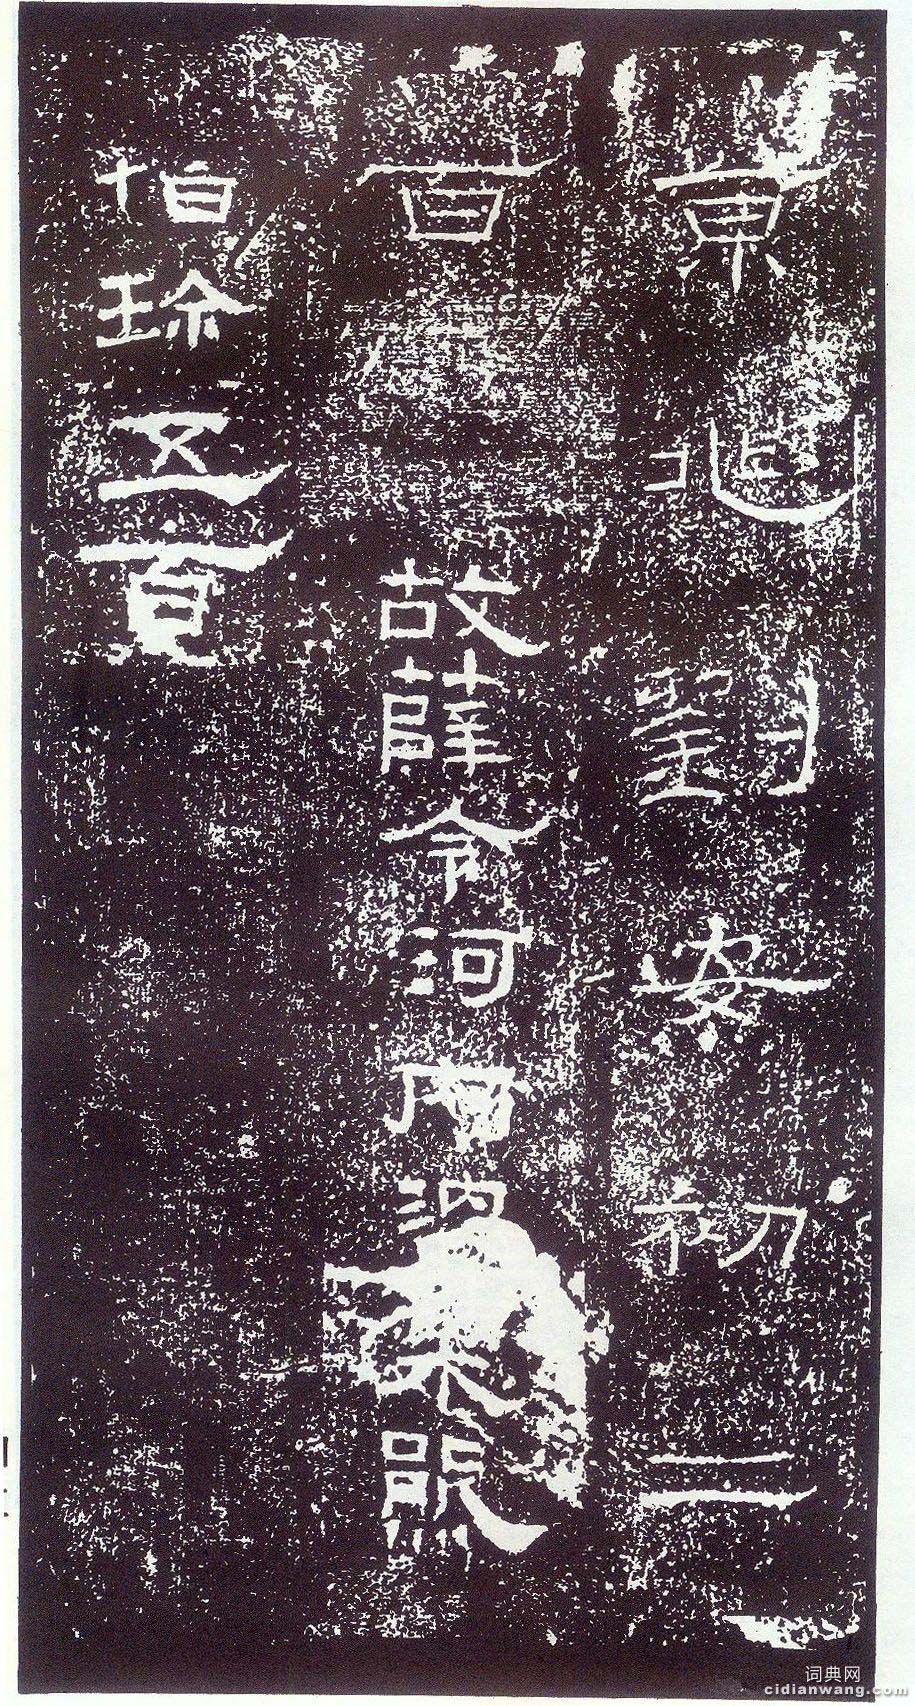 京兆劉安初二
百 故薛令河內溫朱熊
伯珍五百
词典网
cidianwang.com